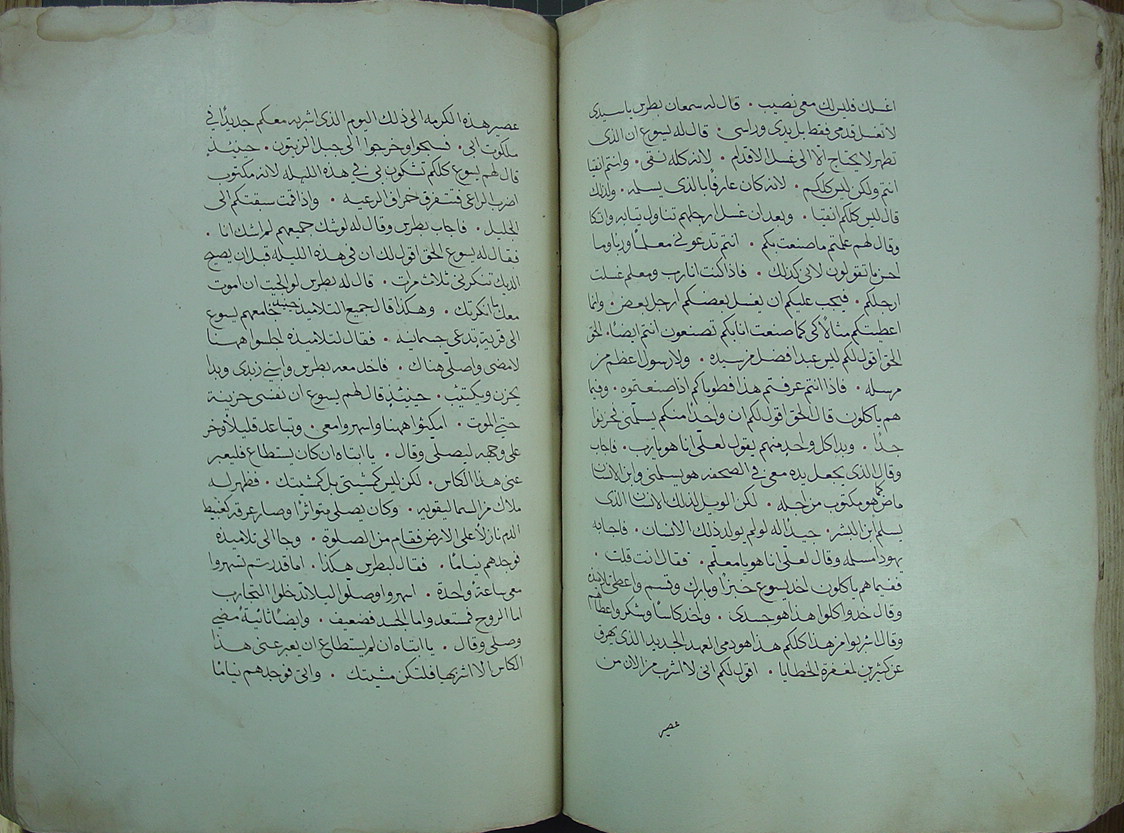 اغسلك فليس لك معي نصيب • قال له سمعان بطرس يا سيدي
لا تغسل قدمي فقط بل يدي وراسي • قال له يسوع ان الذي
تطهر لا يحتاج الا الى غسل الاقدام • لانه كله نقي • وانتم انقيا
انتم ولكن ليس كلكم • لانه كان عارفا بالذي يسلمه • ولذلك
قال ليس كلكم انقيا • وبعد ان غسل ارجلهم تناول ثيابه واتكا
وقال لهم علمتم ما صنعت بكم • انتم تدعونني معلما وربا وما
احسن ما تقولون لاني كذلك • فاذا كنت انا رب ومعلم غسلت
ارجلكم • فيجب عليكم ان يغسل بعضكم ارجل بعض • وانما
اعطيتكم مثالا لكي كما صنعت انا بكم تصنعون انتم ايضا • الحق
الحق اقول لكم ليس عبد افضل من سيده • ولا رسول اعظم من
مرسله • فاذا انتم عرفتم هذا فطوباكم اذا صنعتموه • وفيما
هم ياكلون قال الحق اقول لكم ان واحدا منكم يسلمني فحزنوا
جدا • وبدا كل واحد منهم يقول لعلي انا هو يا رب • فاجاب
وقال الذي يجعل يده معي في الصحفه هو يسلمني وابن الانسان
ماض كما هو مكتوب من اجله • لكن الويل لذلك الانسان الذي
يسلم ابن البشر • جيدا له لو لم يولد ذلك الانسان • فاجابه
يهودا مسلمه وقال لعلي انا هو يا معلم • فقال انت قلت •
ففيما هم ياكلون اخذ يسوع خبزا وبارك وقسم واعطى تلاميذه
وقال خذوا كلوا هذا هو جسدي • واخذ كاسا وشكر واعطاهم
وقال اشربوا من هذا كلكم هذا هو دمي العهد الجديد الذي يهرق
عن كثيرين لمغفرة الخطايا • اقول لكم اني لا اشرب من الان من
عصير
عصير هذه الكرمه الى ذلك اليوم الذي اشربه معكم جديدا في
ملكوت ابي • فسبحوا وخرجوا الى جبل الزيتون • حينئذ
قال لهم يسوع كلكم تشكون بي في هذه الليله لانه مكتوب
اضرب الراعي فتتفرق خراف الرعيه • واذا قمت سبقتكم الى
الجليل • فاجاب بطرس وقال له لو شك جميعهم لم اشك انا •
فقال له يسوع الحق اقول لك ان في هذه الليله قبل ان يصيح
الديك تنكرني ثلاث مرات • قال له بطرس لو الجيت ان اموت
معك ما انكرتك • وهكذا قال جميع التلاميذ حينئذ جا معهم يسوع
الى قرية تدعى جسمانيه • فقال لتلاميذه اجلسوا ههنا
لامضي واصلي هناك • فاخذ معه بطرس وابني زبدى وبدا
يحزن ويكتئب • حينئذ قال لهم يسوع ان نفسي حزينة
حتي الموت • امكثوا ههنا واسهروا معي • وتباعد قليلا وخر
على وجهه ليصلي وقال • يا ابتاه ان كان يستطاع فليعبر
عني هذا الكاس • لكن ليس كمشيتي بل كمشيتك • فظهر له
ملاك من السما ليقويه • وكان يصلي متواترا وصار عرقه كعبيط
الدم نازلا على الارض فقام من الصلوة • وجا الى تلاميذه
فوجدهم نياما • فقال لبطرس هكذا • اما قدرتم تسهروا
معي ساعة واحدة • اسهروا وصلوا ليلا تدخلوا التجارب
اما الروح فمستعد واما الجسد فضعيف • وايضا ثانية مضي
وصلى وقال • يا ابتاه ان لم يستطاع ان يعبر عني هذا
الكاس الا اشربها فلتكن مشيتك • واتي فوجدهم نياما